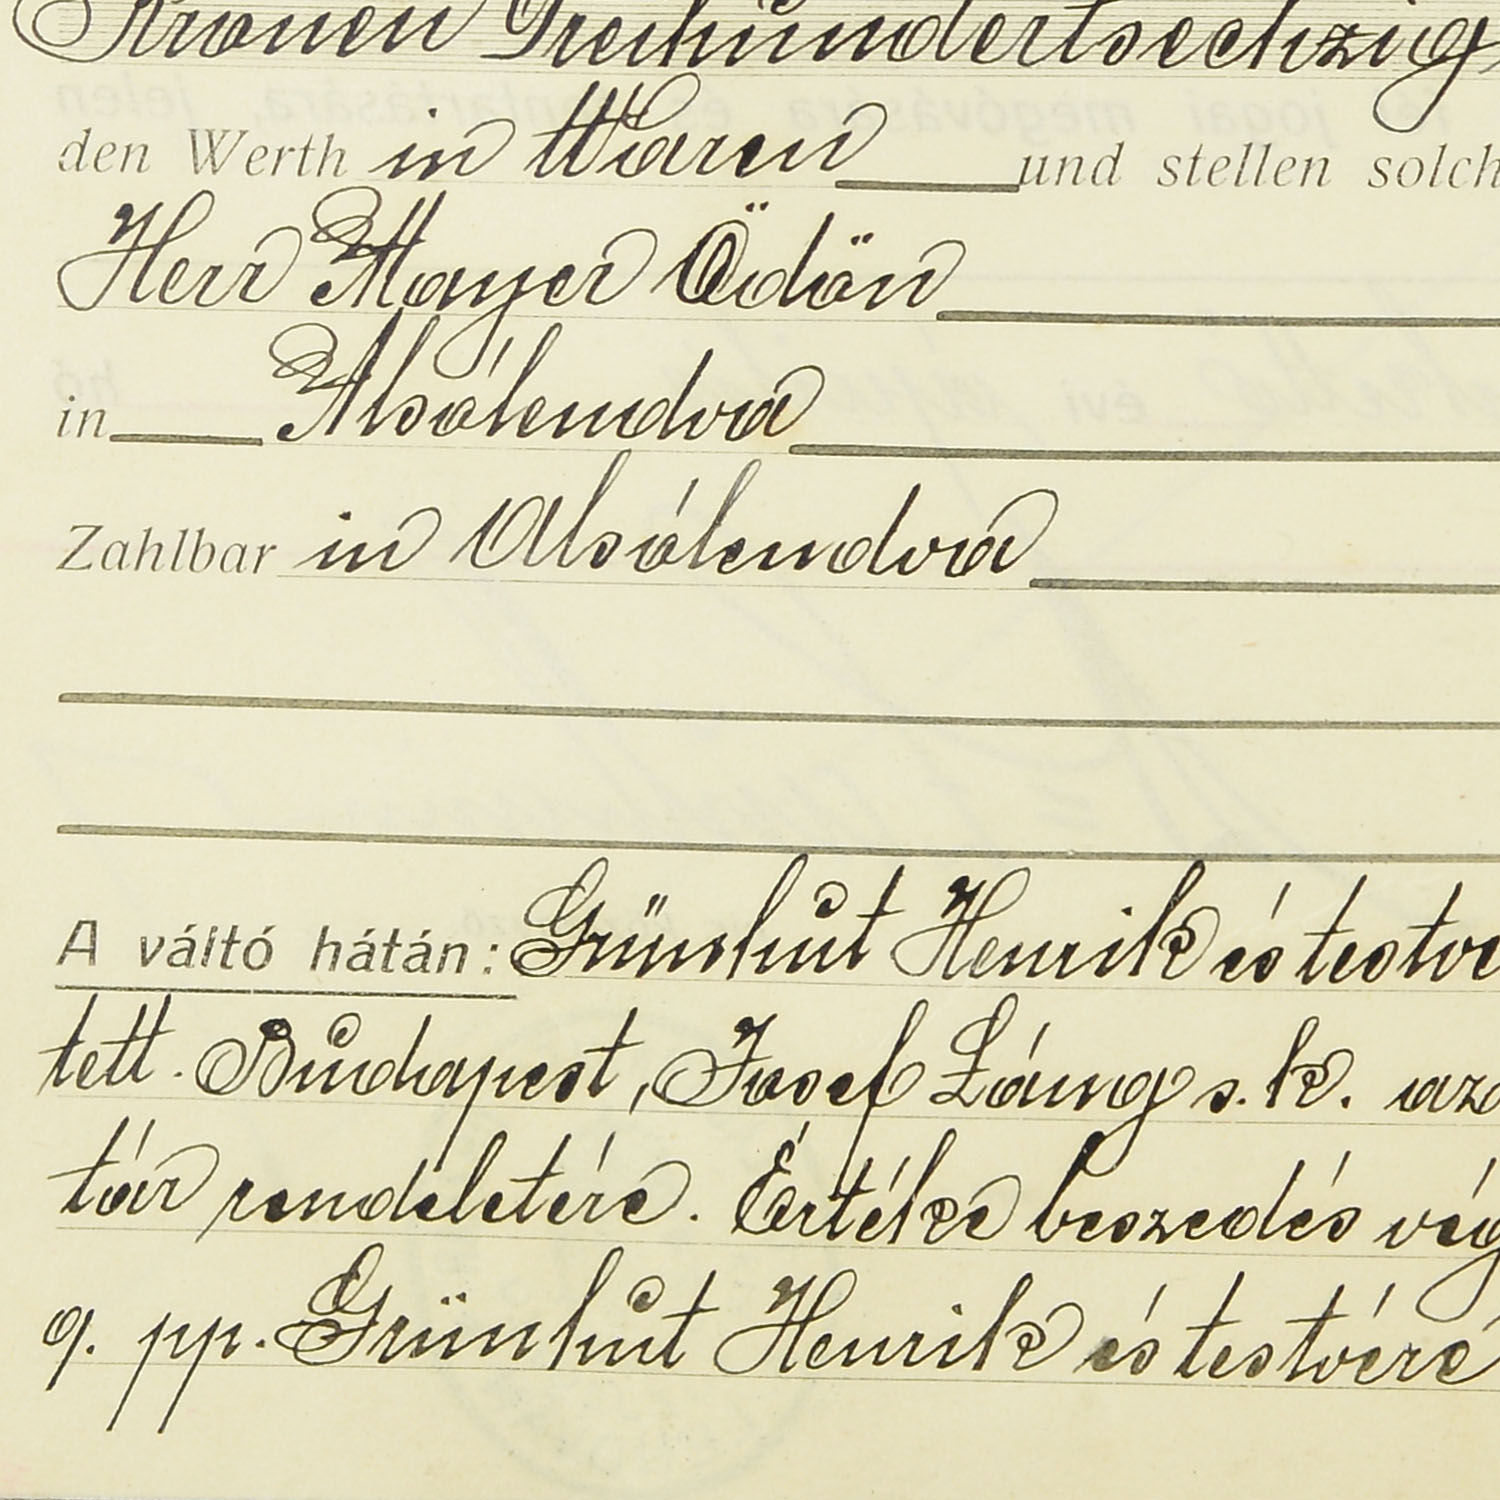 Kronen Dreihundertsechzig
den Werth in Waren und stellen solch
Herr Mayer Ödön
in Alsólendva
Zahlbar in Alsólendva
A váltó hátán: Grünhut Henrik és testvé
tett. Budapest, Josef Láng s. k. az
tár rendeletére. Értéke beszedés vég
9. pp. Grünhut Henrik és testvére